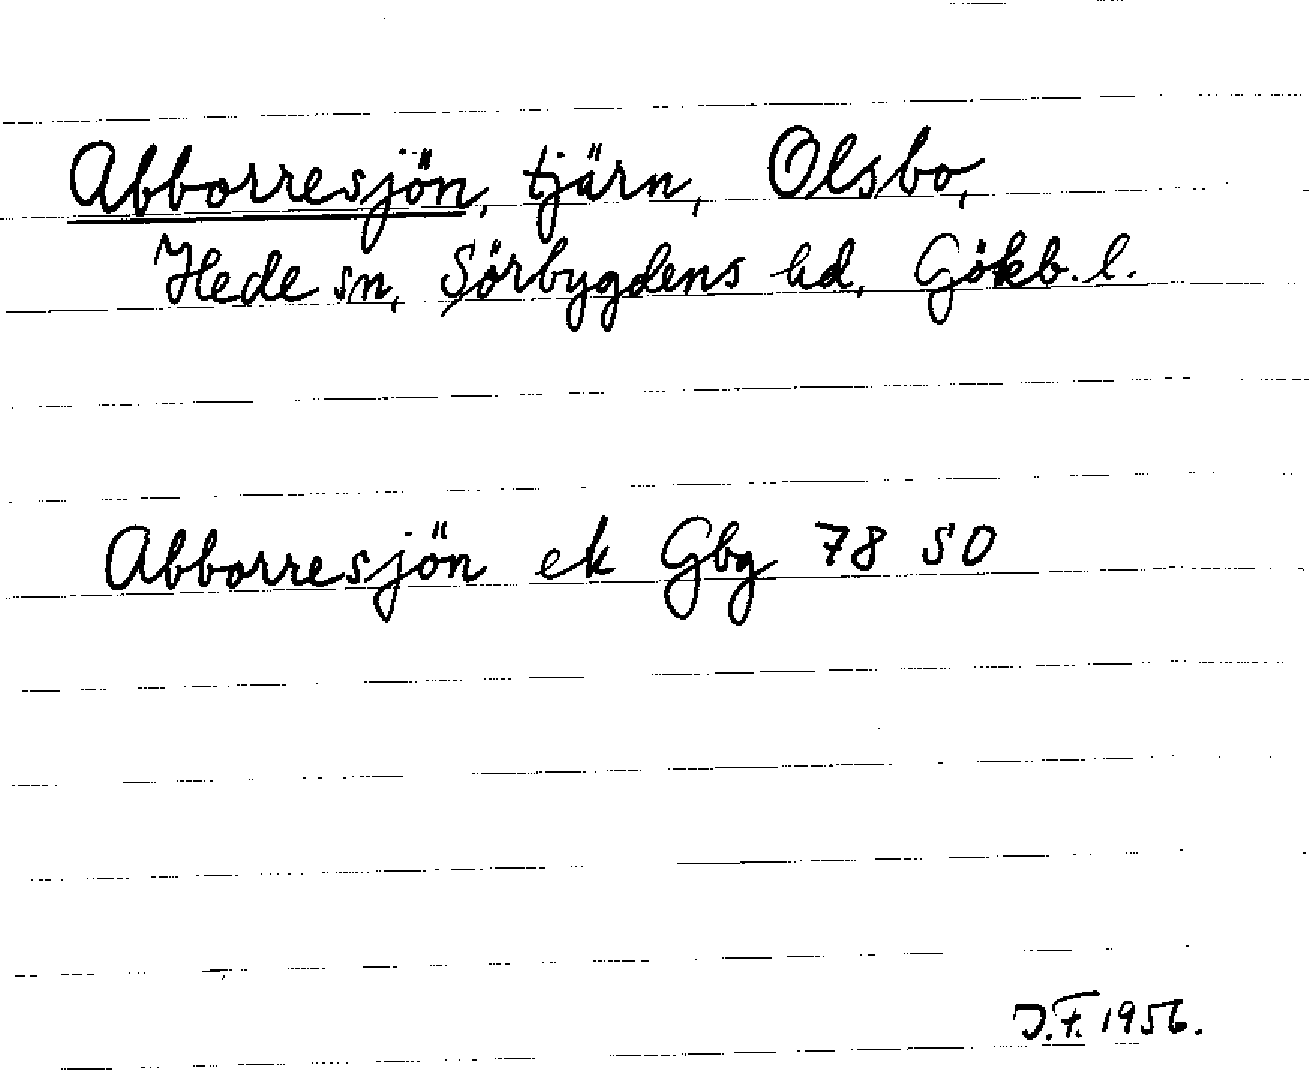 Abborresjön, tjärn, Olsbo,
Hede sn, Sörbygdens hd, Gökb. l.
Abborresjön ek Gbg 78 SO
J.F. 1956.